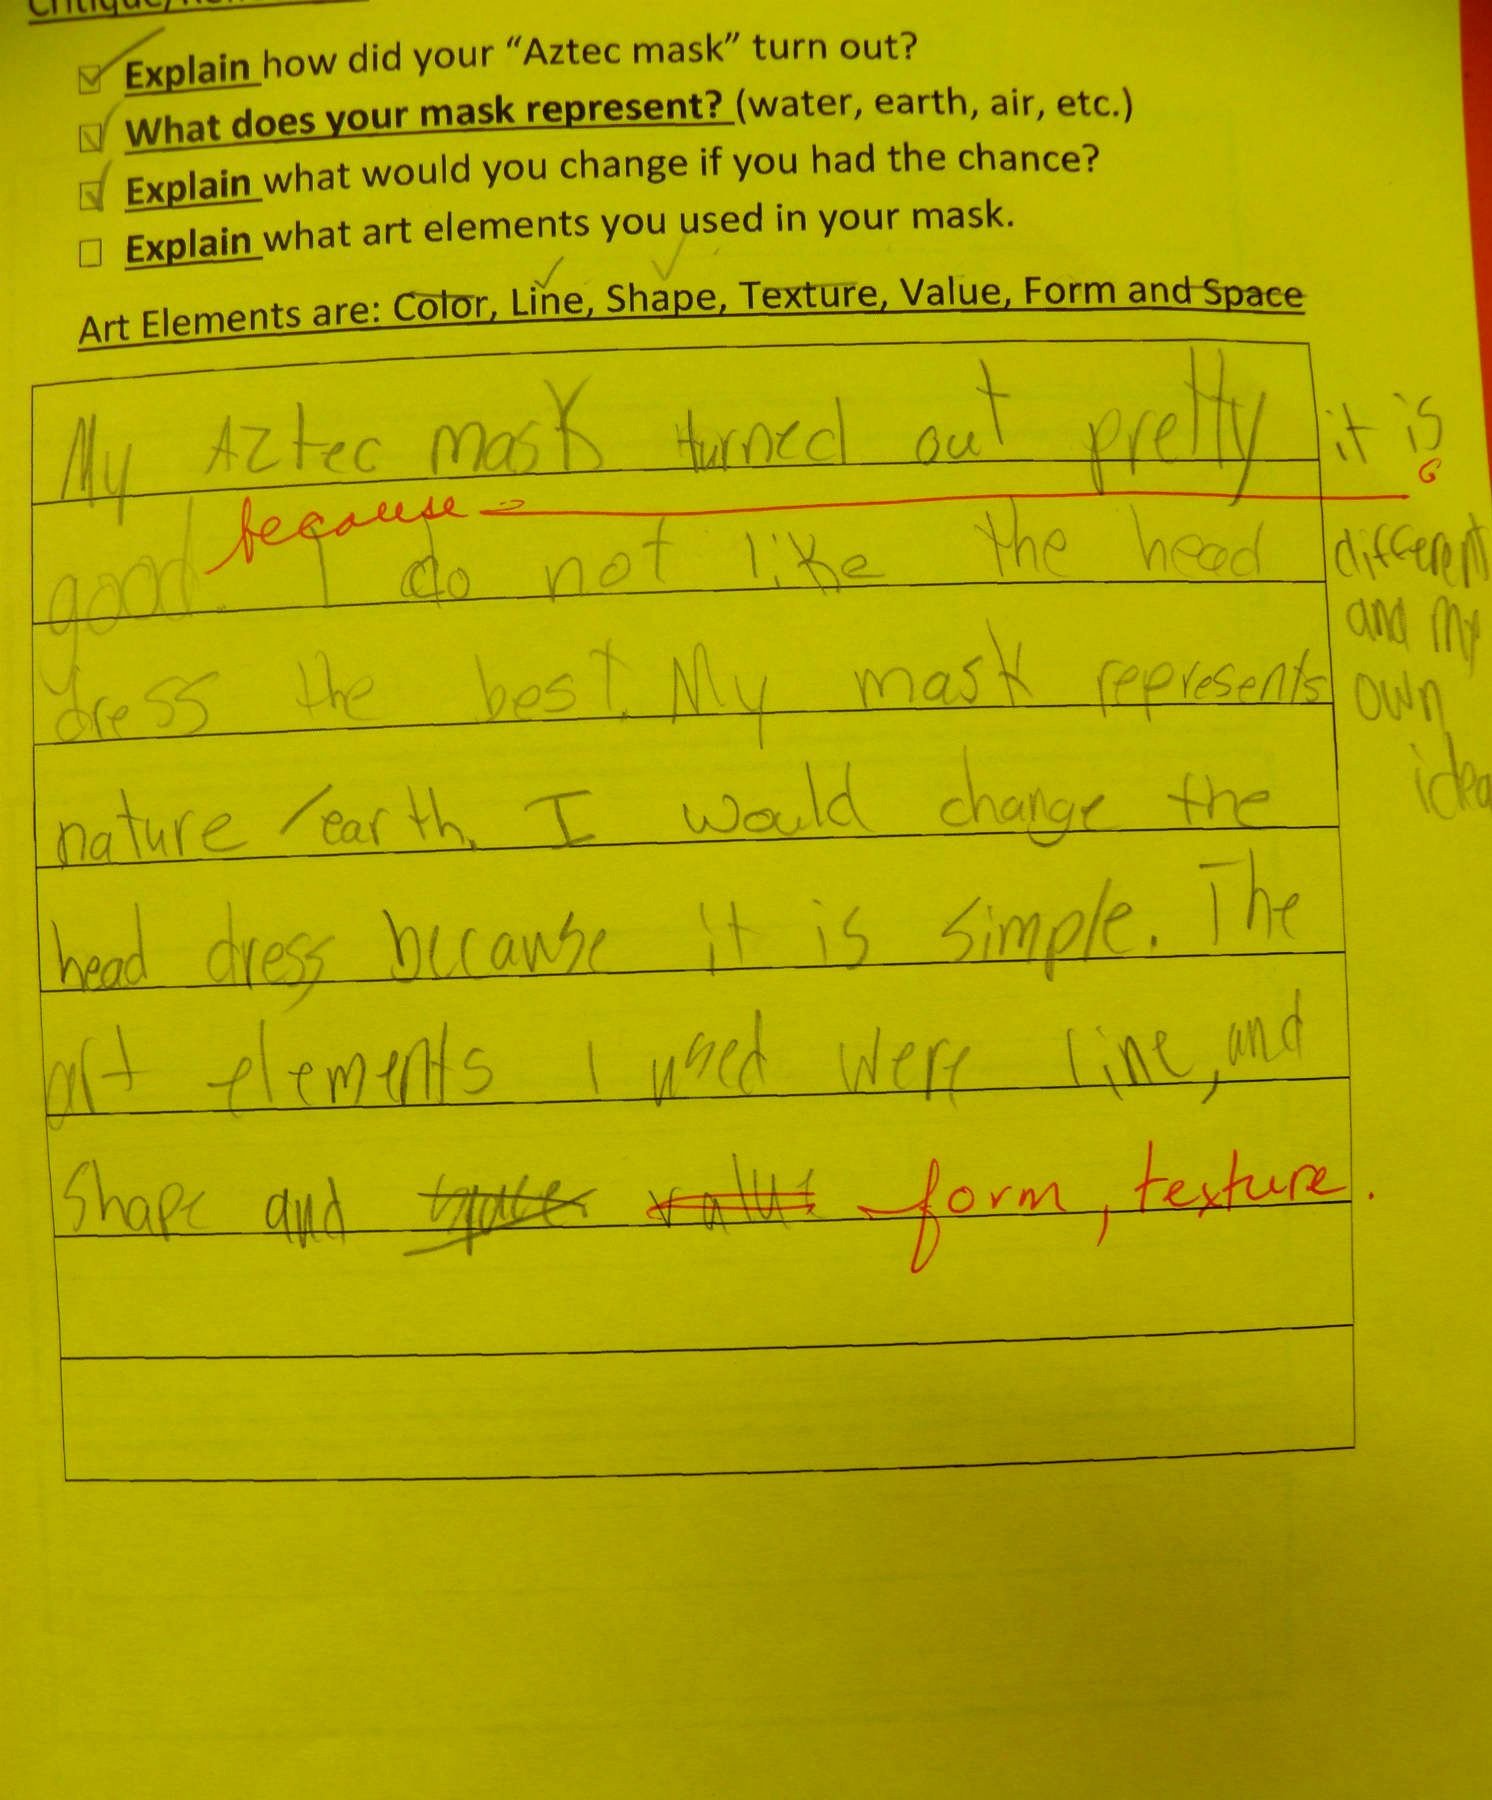 Explain how did your “Aztec mask” turn out?
What does your mask represent? (water, earth, air, etc.)
Explain what would you change if you had the chance?
Explain what art elements you used in your mask.
Art Elements are: Color, Line, Shape, Texture, Value, Form and Space
My Aztec mask turned out pretty
because
good. I do not like the head
dress the best. My mask represents
nature/earth. I would change the
head dress because it is simple. The
art elements I used were line, and
Shape and value form, texture.
it is
different
and my
own
idea